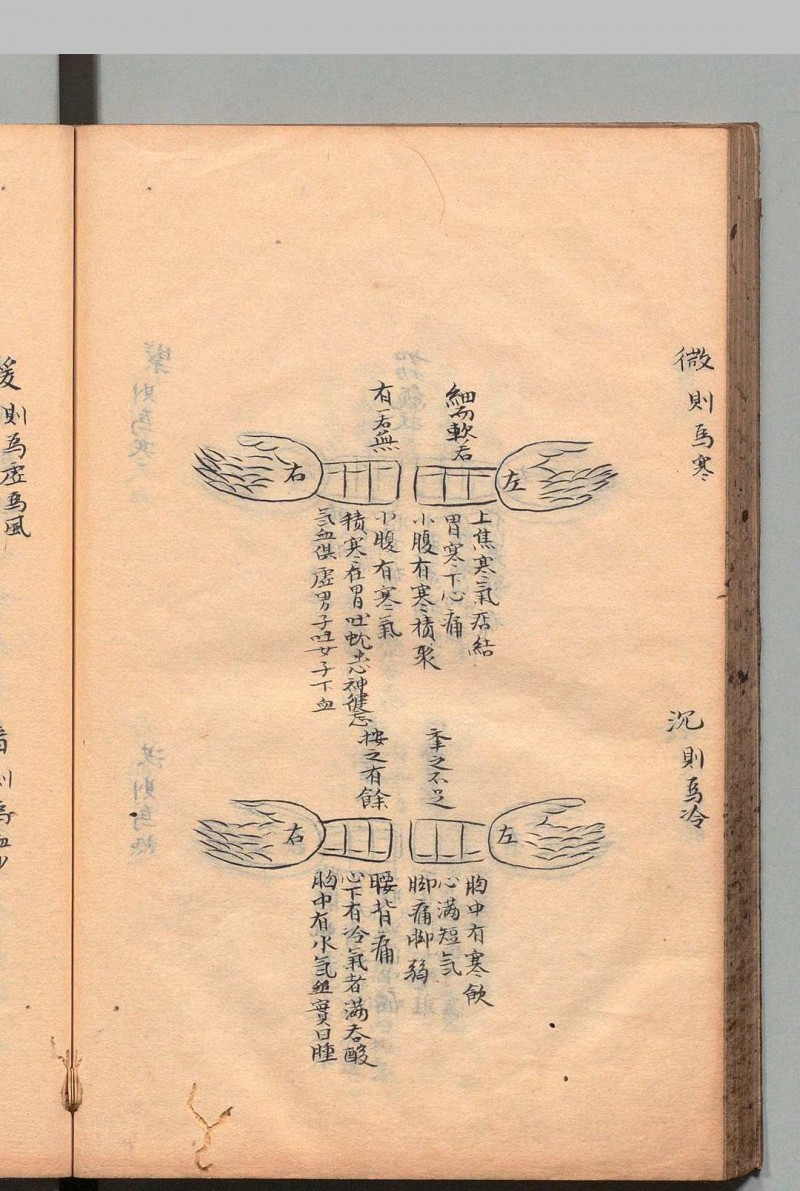 微則爲寒
細而軟若
有若無
左
右
上焦寒氣痞結
胃寒下心痛
小腹有寒積聚
小腹有寒氣
積寒在胃吐蚘忘神健忘
氣血俱虛男子吐女子下血
沉則爲冷
奉之不足
按之有餘
左
右
胸中有寒飲
心满短氣
脚痛脚弱
腰背痛
心下有冷氣者满吞酸
胸中有水氣實日腫
則爲虛爲風
則